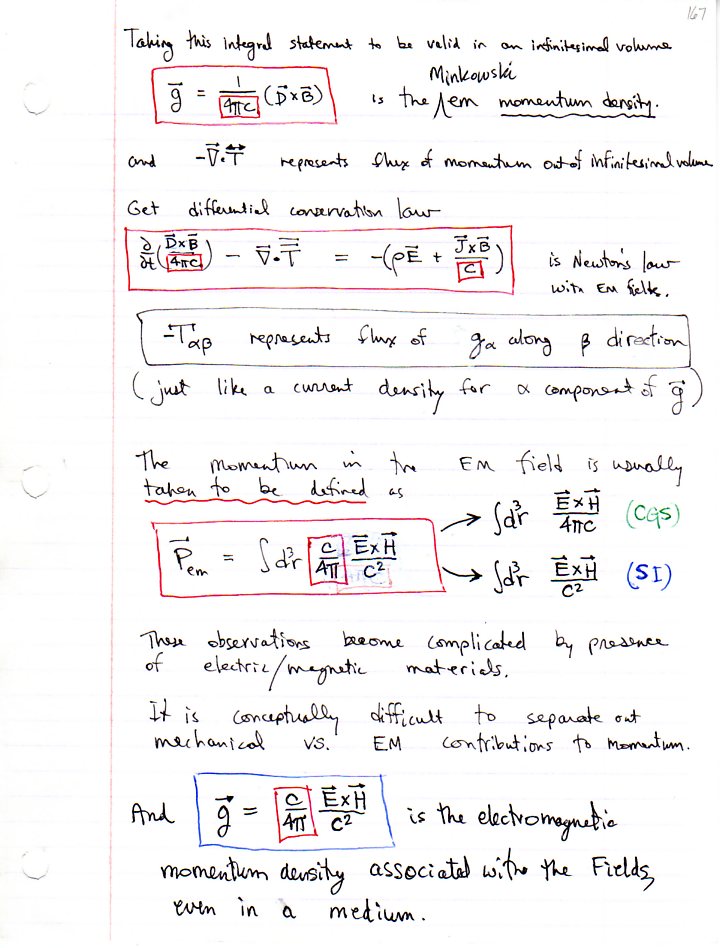 167
Taking this integral statement to be valid in an infinitesimal volume
Minkowski
g⃗ = 1/(4πc) (D⃗×B⃗) is the ∧em momentum density.
and -∇⃗·T⃡ represents flux of momentum out of infinitesimal volume
Get differential conservation law
∂/∂t (D⃗×B⃗/4πc) - ∇⃗·T⃡ = -(ρE⃗ + J⃗×B⃗/c) is Newton's law
with EM fields.
-T_αβ represents flux of g_α along β direction
(just like a current density for α component of g⃗)
The momentum in the EM field is usually
taken to be defined as
P⃗_em = ∫d³r c/4π E⃗×H⃗/c² → ∫d³r E⃗×H⃗/4πc (CGS)
→ ∫d³r E⃗×H⃗/c² (SI)
These observations become complicated by presence
of electric/magnetic materials.
It is conceptually difficult to separate out
mechanical vs. EM contributions to momentum.
And g⃗ = c/4π E⃗×H⃗/c² is the electromagnetic
momentum density associated with the Fields,
even in a medium.